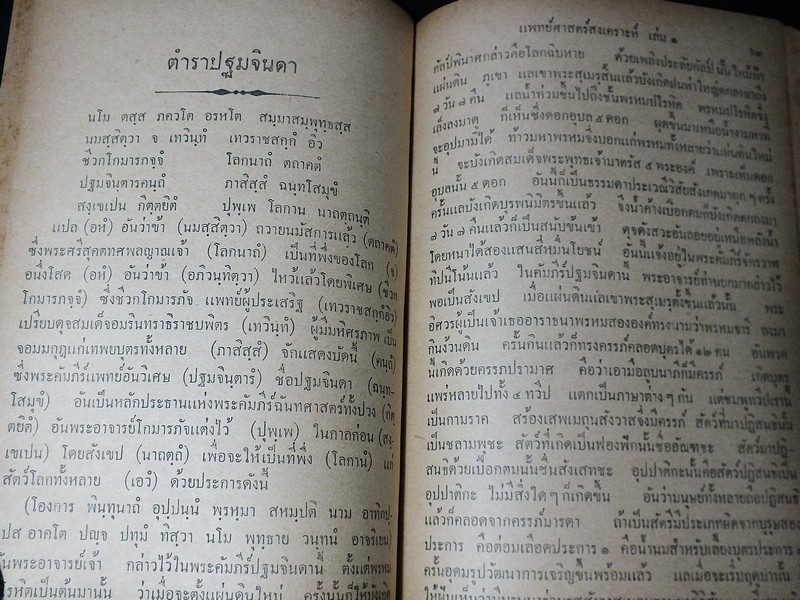 ตำราปฐมจินดา
นโม ตสฺส ภควโต อรหโต สมฺมาสมฺพุทฺธสฺส
นมสฺสิตฺวา จ เทวินฺทํ เทวราชสกฺกํ อิว
ชีวกโกมารภจฺจํ โลกนาถํ ตถาคตํ
ปฐมจินฺตารคนฺถํ ภาสิสฺสํ ฉนฺทโสมุขํ
สงฺเขเปน กิตฺตยิตํ ปุพฺเพ โลกาน นาถตฺถนฺติ
แปล (อหํ) อันว่าข้า (นมสฺสิตฺวา) ถวายนมัสการแล้ว (ตถาคตํ)
ซึ่งพระศรีสุคตทศพลญาณเจ้า (โลกนาถํ) เป็นที่พึ่งของโลก (จ)
อนึ่งโสด (อหํ) อันว่าข้า (อภิวนฺทิตฺวา) ไหว้แล้วโดยพิเศษ (ชีวก
โกมารภจฺจํ) ซึ่งชีวกโกมารภัจ แพทย์ผู้ประเสริฐ (เทวราชสกฺกํอิว)
เปรียบดุจสมเด็จอมรินทราธิราชบพิตร (เทวินฺทํ) ผู้มีมหิศรภาพเป็น
จอมมกุฎแก่เทพยบุตรทั้งหลาย (ภาสิสฺสํ) จักแสดงบัดนี้ (คนฺถํ)
ซึ่งพระคัมภีร์แพทย์อันวิเศษ (ปฐมจินฺตารํ) ชื่อปฐมจินดา (ฉนฺท-
โสมุขํ) อันเป็นหลักประธานแห่งพระคัมภีร์ฉันทศาสตร์ทั้งปวง (กิตฺ
ตยิตํ) อันพระอาจารย์โกมารภัจแต่งไว้ (ปุพฺเพ) ในกาลก่อน (สงฺ-
เขเปน) โดยสังเขป (นาถตฺถํ) เพื่อจะให้เป็นที่พึ่ง (โลกานํ) แก่
สัตว์โลกทั้งหลาย (เอวํ) ด้วยประการดังนี้
(โองการ พินฺทุนาถํ อุปฺปนฺนํ พฺรหฺมา สหมฺปติ นาม อาทิกปฺ-
ปส อาคโต ปญฺจ ปทุมํ ทิสฺวา นโม พุทฺธาย วนฺทนํ อาจริเยน)
พระอาจารย์เจ้า กล่าวไว้ในพระคัมภีร์ปฐมจินดานี้ ตั้งแต่พรหม
เป็นต้นมานั้น ว่าเมื่อจะตั้งแผ่นดินใหม่
แพทย์ศาสตร์สงเคราะห์ เล่ม ๑
กัลป์พินาศกล่าวคือโลกฉิบหาย ด้วยเพลิงประลัยกัลป์นั้นไหม้ฟ้า
แผ่นดิน ภูเขา และเขาพระสุเมรุสิ้นแล้วบังเกิดฝนห่าใหญ่ตกลงมาถึง
๗ วัน ๗ คืน แลน้ำท่วมขึ้นไปถึงชั้นพรหมปโรหิต พรหมปโรหิตจึ่ง
เล็งลงมาดู ก็เห็นซึ่งดอกอุบล ๕ ดอก ผุดขึ้นมาเหนือน้ำงามหาที่
จะอุปมามิได้ ท้าวมหาพรหมจึ่งบอกแก่พรหมทั้งหลายว่าแผ่นดินใหม่
นี้ จะบังเกิดสมเด็จพระพุทธเจ้ามาตรัส ๕ พระองค์ เพราะเห็นดอก
อุบลนั้น ๕ ดอก อันนี้ก็เป็นธรรมดาประเวณีวิสัยสังเกตมาทุก ๆ ครั้ง
ครั้นแลบังเกิดบุรพนิมิตร์ขึ้นแล้ว จึ่งน้ำค้างเปือกตมก็บังเกิดตกลงมา
๗ วัน ๗ คืนแล้วก็เป็นสนับข้นเข้า ดุจดังสวะอันลอยอยู่เหนือหลังน้ำ
โดยหนาได้สองแสนสี่หมื่นโยชน์ อันนี้แจ้งอยู่ในพระคัมภีร์จักรวาฬ
ทีปนีโน้นแล้ว ในคัมภีร์ปฐมจินดานี้ พระอาจารย์ท่านยกมากล่าวไว้
พอเป็นสังเขป เมื่อแผ่นดินแลเขาพระสุเมรุตั้งขึ้นแล้วนั้น พระ
อิศวรผู้เป็นเจ้าเธออาราธนาพรหมสององค์ทรงนามว่าพรหมจารี ลงมา
กินง้วนดิน ครั้นกินแล้วก็ทรงครรภ์คลอดบุตรได้ ๑๒ คน อันพวก
นี้เกิดด้วยครรภปรามาศ คือว่าเอามือลูบนาภีก็มีครรภ์ เกิดบุตร
แพร่หลายไปทั้ง ๔ ทวีป แตกเป็นภาษาต่าง ๆ กัน แต่ชมพูทวีปเรานี้
เป็นกามราค สร้องเสพเมถุนสังวาสจึ่งมีครรภ์ สัตว์ที่มาปฏิสนธินั้น
เป็นชลามพุชะ สัตว์ที่เกิดเป็นฟองฟักนั้นชื่ออัณฑชะ สัตว์มาปฏิ-
สนธิด้วยเปือกตมนั้นชื่นสังเสทชะ อุปปาติกะนั้นคือสัตว์ปฏิสนธิเป็น
อุปปาติกะ ไม่มีสิ่งใด ๆ ก็เกิดขึ้น อันว่ามนุษย์ทั้งหลายถือปฏิสนธิ
แล้วก็คลอดจากครรภ์มารดา ถ้าเป็นสัตรีมีประเภทผิดจากบุรุษสอง
ประการ คือต่อมเลือดประการ ๑ คือน้ำนมสำหรับเลี้ยงบุตรประการ ๑
ครั้นอุดมรูปวัฒนาการเจริญขึ้นพร้อมแล้ว แลเมื่อจะเริ่มฤดูมานั้น